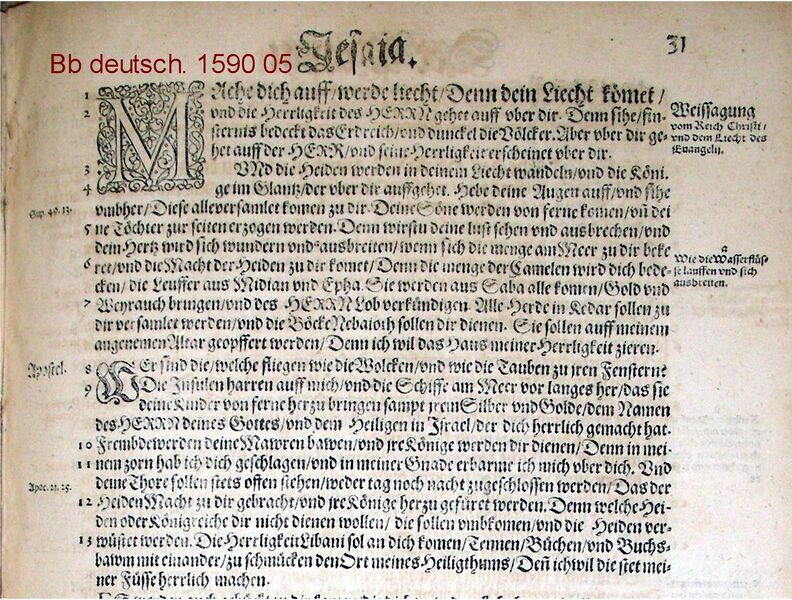 Jesaia.
31
Bb deutsch. 1590 05
1 MAche dich auff/werde liecht/Denn dein Liecht kömet/
2 vnd die Herrligkeit des HERRN gehet auff vber dir. Denn sihe/fin-
sternis bedeckt das Erdreich/vnd dunckel die Völcker. Aber vber dir ge-
het auff der HERR/vnd seine Herrligkeit erscheinet vber dir.
Weissagung
vom Reich Christi/
vnd dem Liecht des
Euangelij.
3 VNd die Heiden werden in deinem Liecht wandeln/vnd die Köni-
4 ge im Glantz/der vber dir auffgehet. Hebe deine Augen auff/vnd sihe
vmbher/Diese alle versamlet komen zu dir. Deine Söne werden von ferne komen/vñ dei
5 ne Töchter zur seiten erzogen werden. Denn wirstu deine lust sehen vnd ausbrechen/vnd
dein Hertz wird sich wundern vnd ausbreiten/wenn sich die menge am Meer zu dir beke
6 ret/vnd die Macht der Heiden zu dir komet/Denn die menge der Camelen wird dich bede-
cken/die Leuffer aus Midian vnd Epha. Sie werden aus Saba alle komen/Gold vnd
a
Wie die Wasserflüs-
se lauffen vnd sich
ausbreiten.
7 Weyrauch bringen/vnd des HERRN Lob verkündigen. Alle Herde in Kedar sollen zu
dir versamlet werden/vnd die Böcke Nebaioth sollen dir dienen. Sie sollen auff meinem
angenemen Altar geopffert werden/Denn ich wil das Haus meiner Herrligkeit zieren.
Apostel.
8 WEr sind die/welche fliegen wie die Wolcken/vnd wie die Tauben zu jren Fenstern?
9 Die Insulen harren auff mich/vnd die Schiffe am Meer vor langes her/das sie
deine Kinder von ferne herzu bringen sampt jrem Silber vnd Golde/dem Namen
des HERRN deines Gottes/vnd dem Heiligen in Israel/der dich herrlich gemacht hat.
10 Frembde werden deine Mawren bawen/vnd jre Könige werden dir dienen/Denn in mei-
11 nem zorn hab ich dich geschlagen/vnd in meiner Gnade erbarme ich mich vber dich. Vnd
deine Thore sollen stets offen stehen/weder tag noch nacht zugeschlossen werden/Das der
Apoc. 21. 25.
12 Heiden Macht zu dir gebracht/vnd jre Könige herzu gefüret werden. Denn welche Hei-
den oder Königreiche dir nicht dienen wollen/die sollen vmbkomen/vnd die Heiden ver-
13 wüstet werden. Die Herrligkeit Libani sol an dich komen/Tennen/Büchen/vnd Buchs-
bawm mit einander/zu schmücken den Ort meines Heiligthums/Deñ ich wil die stet mei-
ner Füsse herrlich machen.